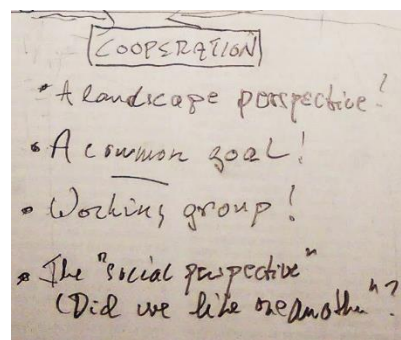 COOPERATION
• A landscape perspective!
• A common goal!
• Working group!
• The "social perspective"
(Did we like one another"?